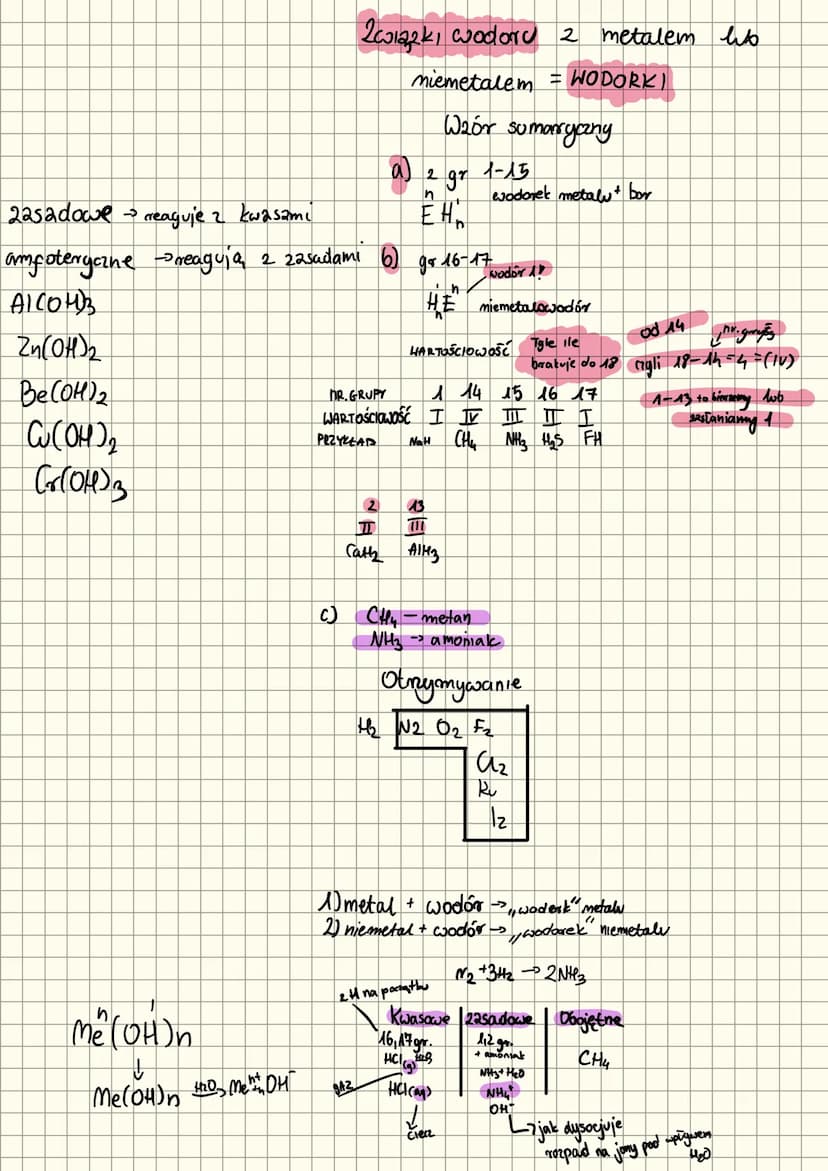 Związki wodoru z metalem lub
niemetalem = WODORKI
Wzór sumaryczny
a) z gr 1-15
wodorek metalu + bor
n I
E Hn
zasadowe → reaguje z kwasami
amfoteryczne → reagują z zasadami
Al(OH)3
Zn(OH)2
Be(OH)2
Cu(OH)2
Cr(OH)3
b) gr 16-17
wodór 1!
I n
HnE niemetalowodór
WARTOŚCIOWOŚĆ
Tyle ile
brakuje do 18
od 14 nr. grupy
czyli 18-14=4=(IV)
1-13 to bierzemy lub
zasłaniamy 1
NR. GRUPY 1 14 15 16 17
WARTOŚCIOWOŚĆ I IV III II I
PRZYKŁAD NaH CH4 NH3 H2S FH
2 13
II III
CaH2 AlH3
c) CH4 – metan
NH3 → amoniak
Otrzymywanie
H2 N2 O2 F2
Cl2
I2
1) metal + wodór → "wodorek" metalu
2) niemetal + wodór → "wodorek" niemetalu
N2+3H2 → 2NH3
z H na początku
Kwasowe zasadowe Obojętne
16,17 gr. 1,2 gr. CH4
+ amoniak
HCl(g)
gaz
NH3+H2O
HCl(aq) NH4+
OH-
ciecz
jak dysocjuje
rozpad na jony pod wpływem
H2O
n I
Me(OH)n
↓
Me(OH)n H2O→ Me n+ + nOH-